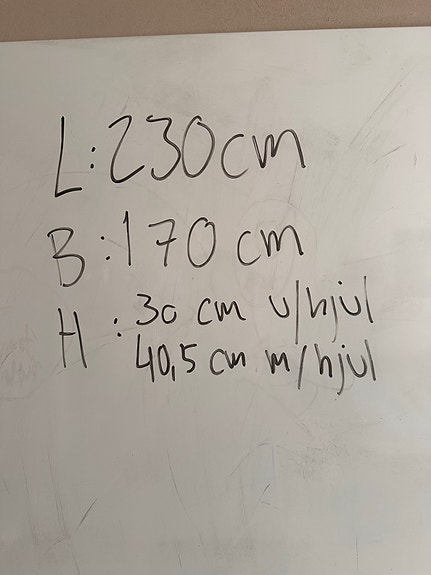 L: 230 cm
B: 170 cm
H: 30 cm u/hjul
40,5 cm m/hjul